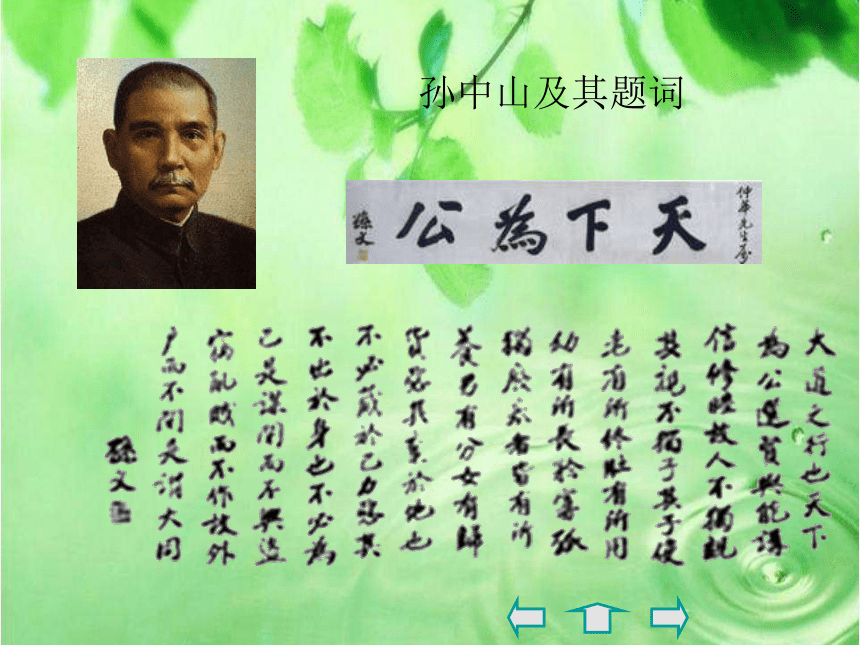 孙中山及其题词
仲華先生屬
天下為公
孫文
大道之行也天下
為公選賢與能講
信修睦故人不獨親
其親不獨子其子使
老有所終壯有所用
幼有所長矜寡孤
獨廢疾者皆有所
養男有分女有歸
貨惡其棄於地也
不必藏於己力惡其
不出於身也不必為
己是謀閉而不興盜
竊亂賊而不作故外
户而不閉是謂大同
孫文